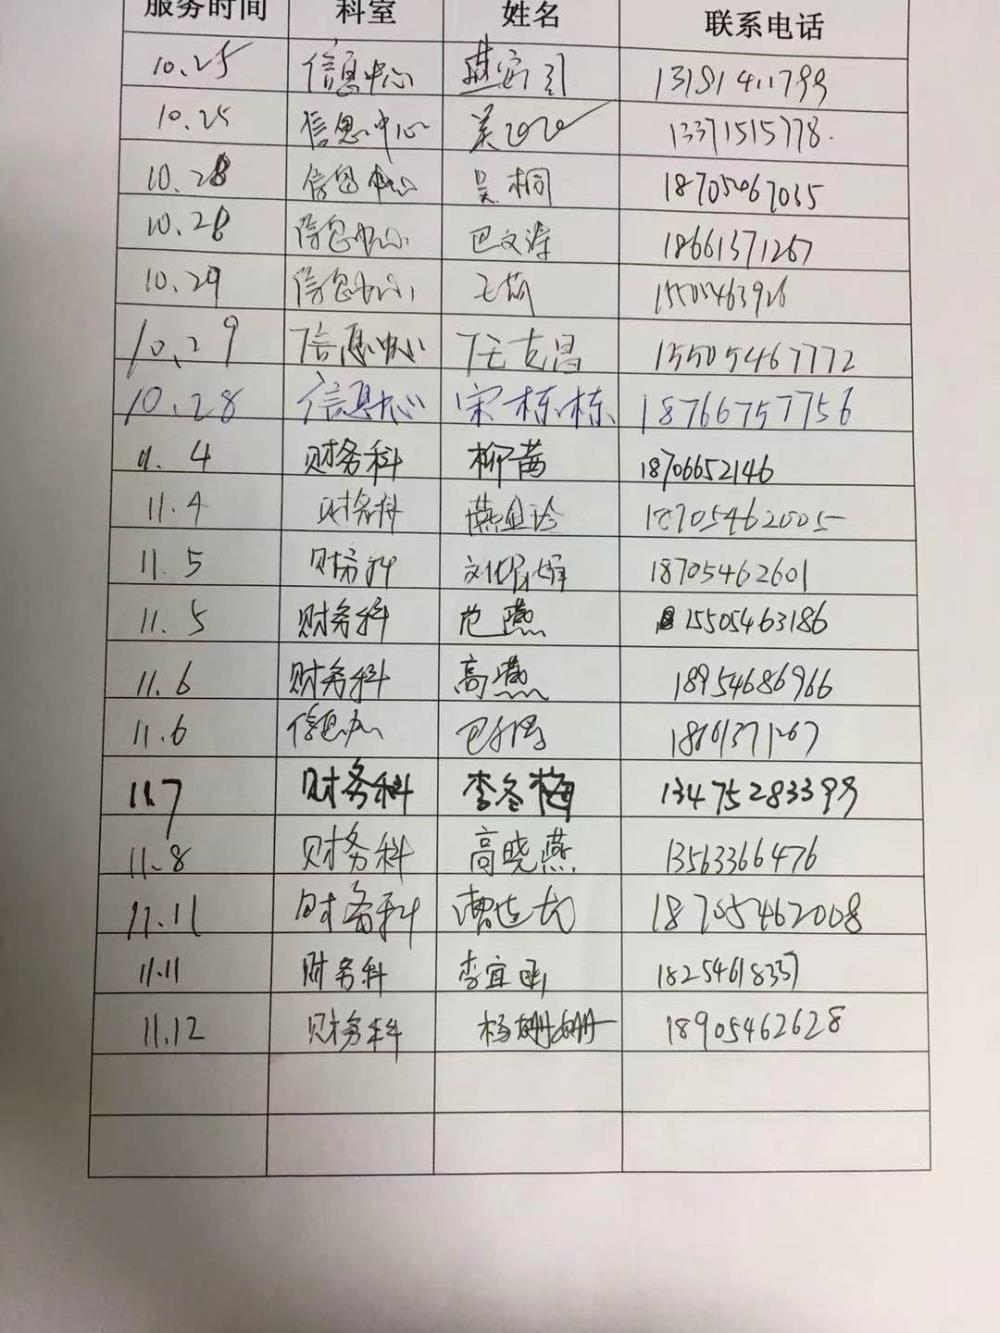 服务时间 科室 姓名 联系电话
10.25 信息中心 13181411799
10.25 信息中心 吴 13371515778.
10.28 信息中心 吴桐 18705067035
10.28 信息中心 巴文涛 18661371267
10.29 信息中心 王茹 15505463926
10.29 信息中心 任克昌 15505467772
10.28 信息中心 宋栋栋 18766757756
11.4 财务科 柳茜 18706652146
11.4 财务科 18705462005
11.5 财务科 18705462601
11.5 财务科 范燕 15505463186
11.6 财务科 高燕 18954686966
11.6 信息中心 18661371267
11.7 财务科 李冬梅 13475283399
11.8 财务科 高晓燕 13563366476
11.11 财务科 18705462008
11.11 财务科 李宜 18254618337
11.12 财务科 杨姗姗 18905462628